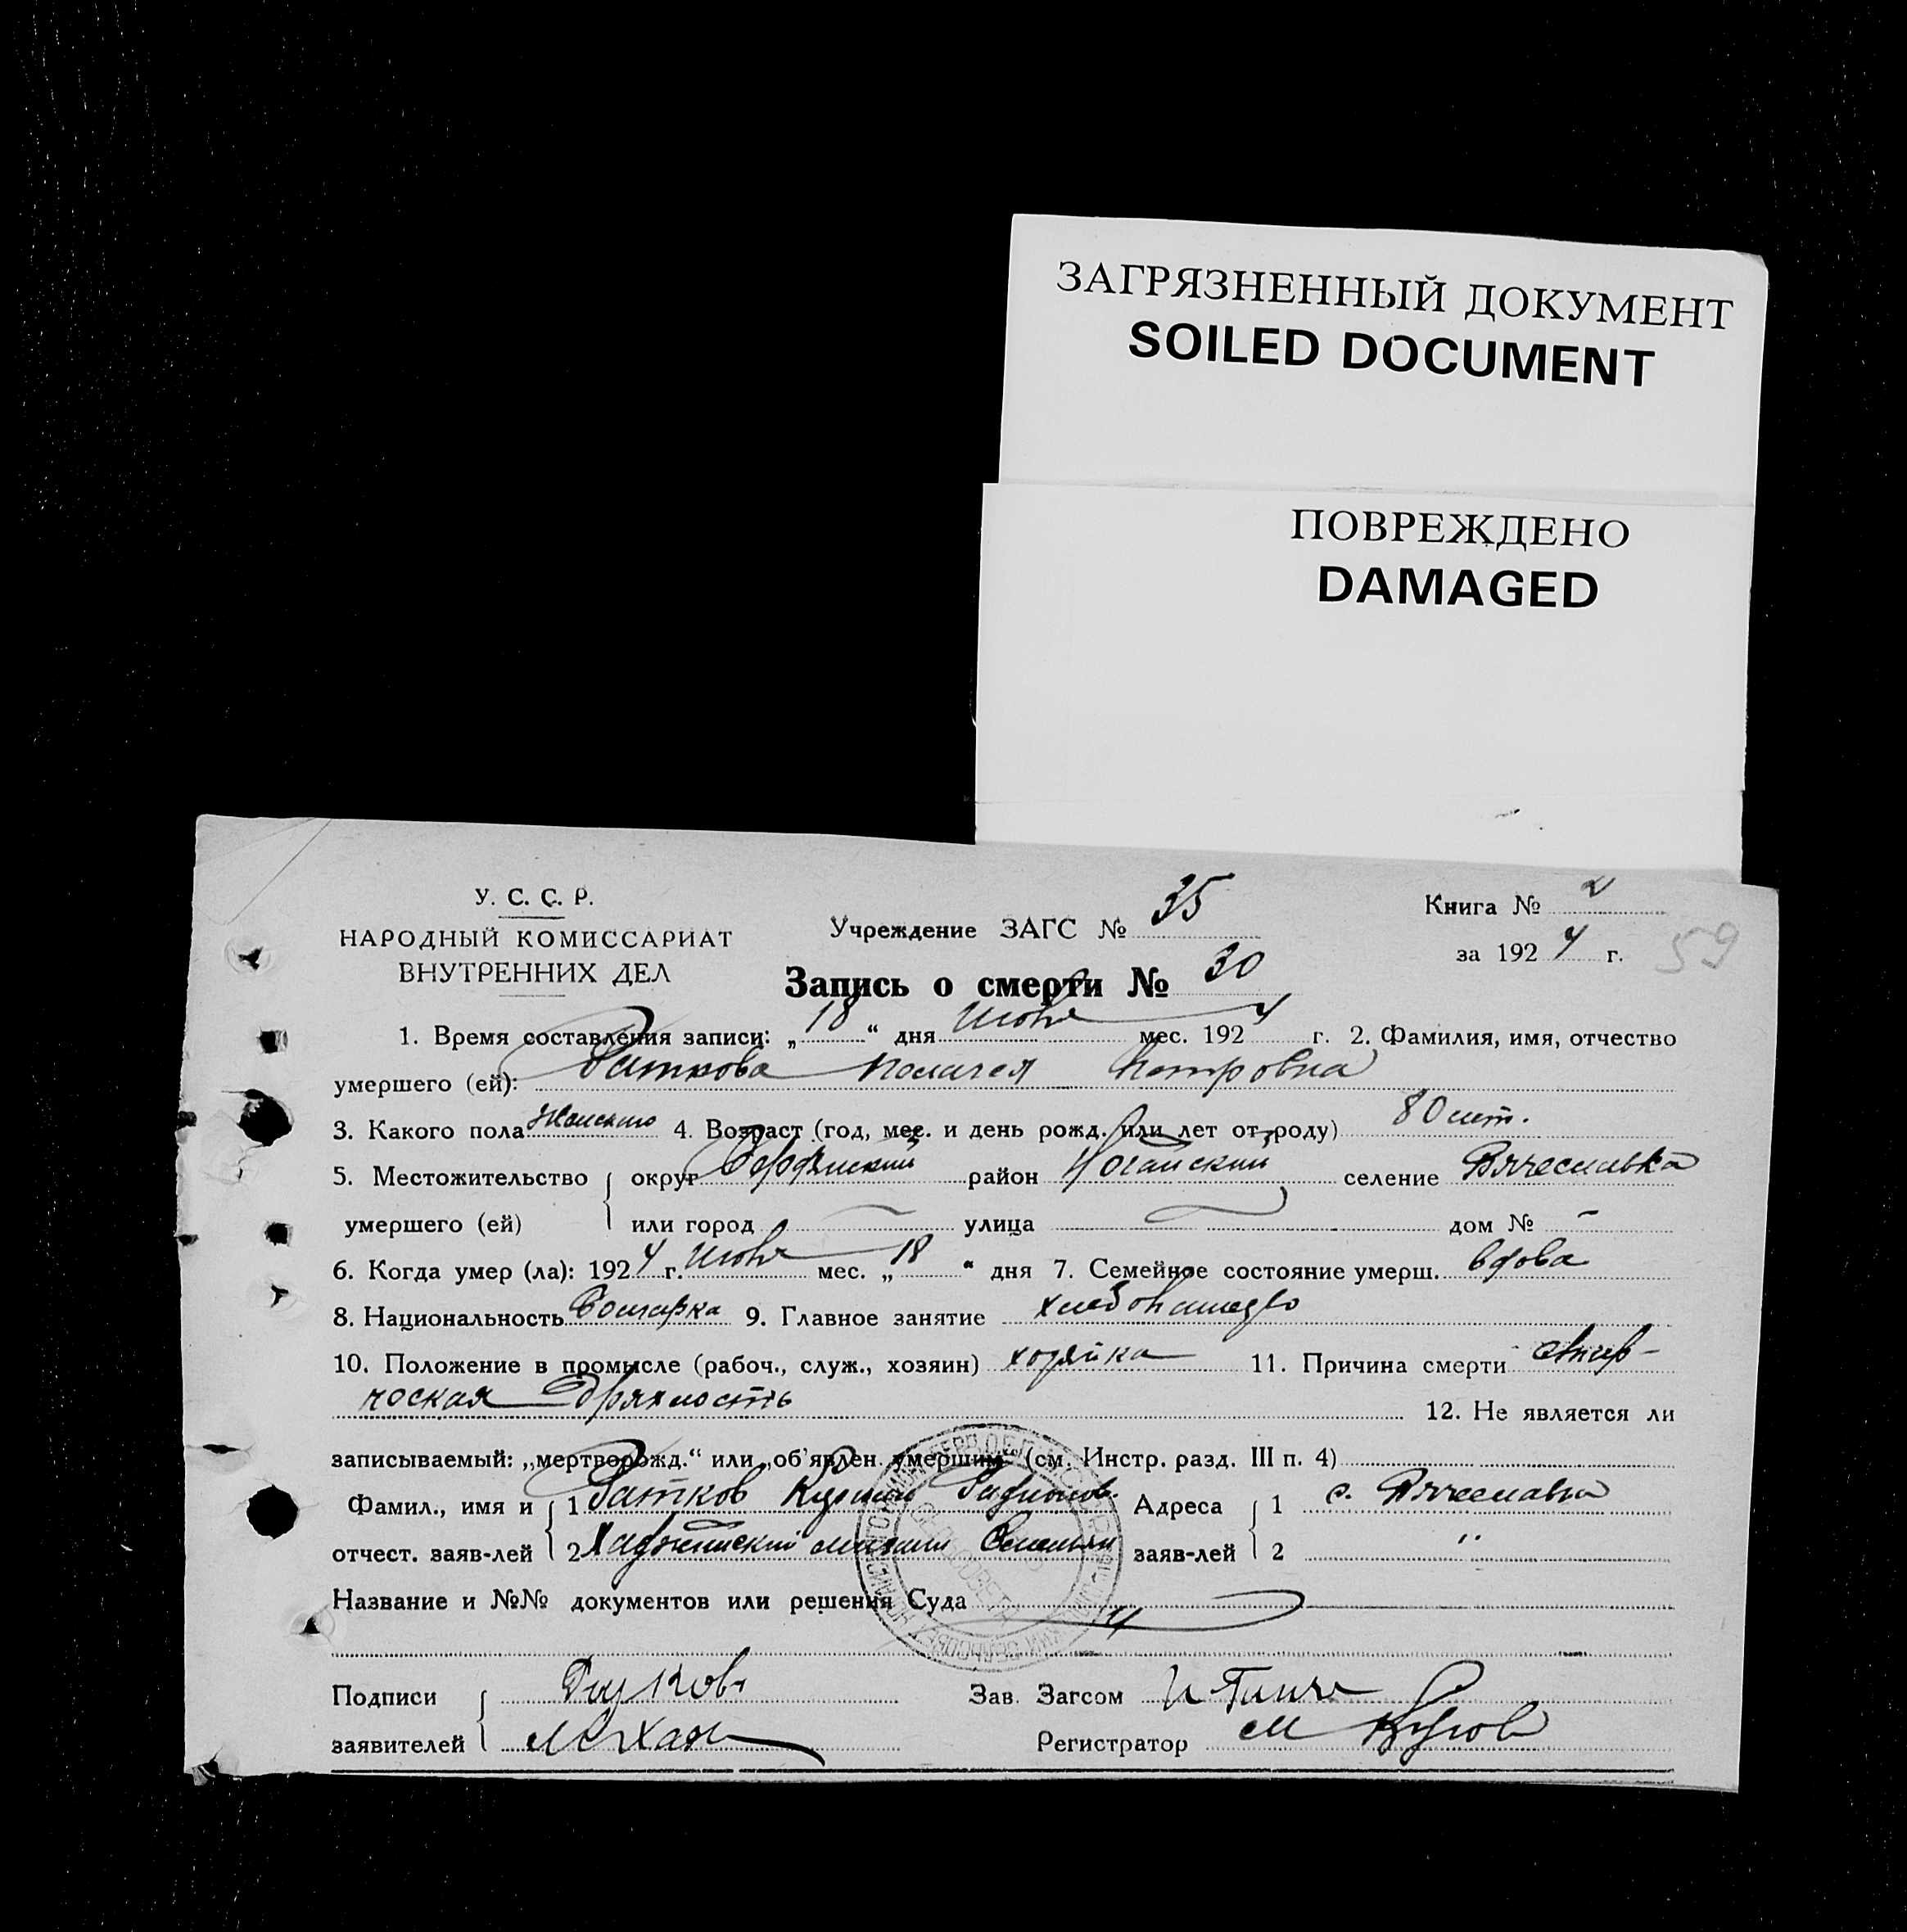 ЗАГРЯЗНЕННЫЙ ДОКУМЕНТ
SOILED DOCUMENT
ПОВРЕЖДЕНО
DAMAGED
У. С. С. Р.
НАРОДНЫЙ КОМИССАРИАТ
ВНУТРЕННИХ ДЕЛ
Учреждение ЗАГС № 35
Книга № 2
за 1924 г. 59
Запись о смерти № 30
1. Время составления записи: „18“ дня мес. 1924 г. 2. Фамилия, имя, отчество
умершего (ей): Петровна
3. Какого пола Женского 4. Возраст (год, мес. и день рожд. или лет от роду) 80 лет.
5. Местожительство округ Бердянский район Ногайский селение Вячеславка
умершего (ей) или город улица дом № -
6. Когда умер (ла): 1924 г. мес. „18“ дня 7. Семейное состояние умерш. вдова
8. Национальность Болгарка 9. Главное занятие
10. Положение в промысле (рабоч., служ., хозяин) хозяйка 11. Причина смерти
ческая дряхлость 12. Не является ли
записываемый: „мертворожд.“ или „об'явлен. умершим“ (см. Инстр. разд. III п. 4)
Фамил., имя и 1 Адреса 1 с. Вячеславка
отчест. заяв-лей 2 заяв-лей 2 "
Название и №№ документов или решения Суда
Подписи Зав. Загсом
заявителей Регистратор